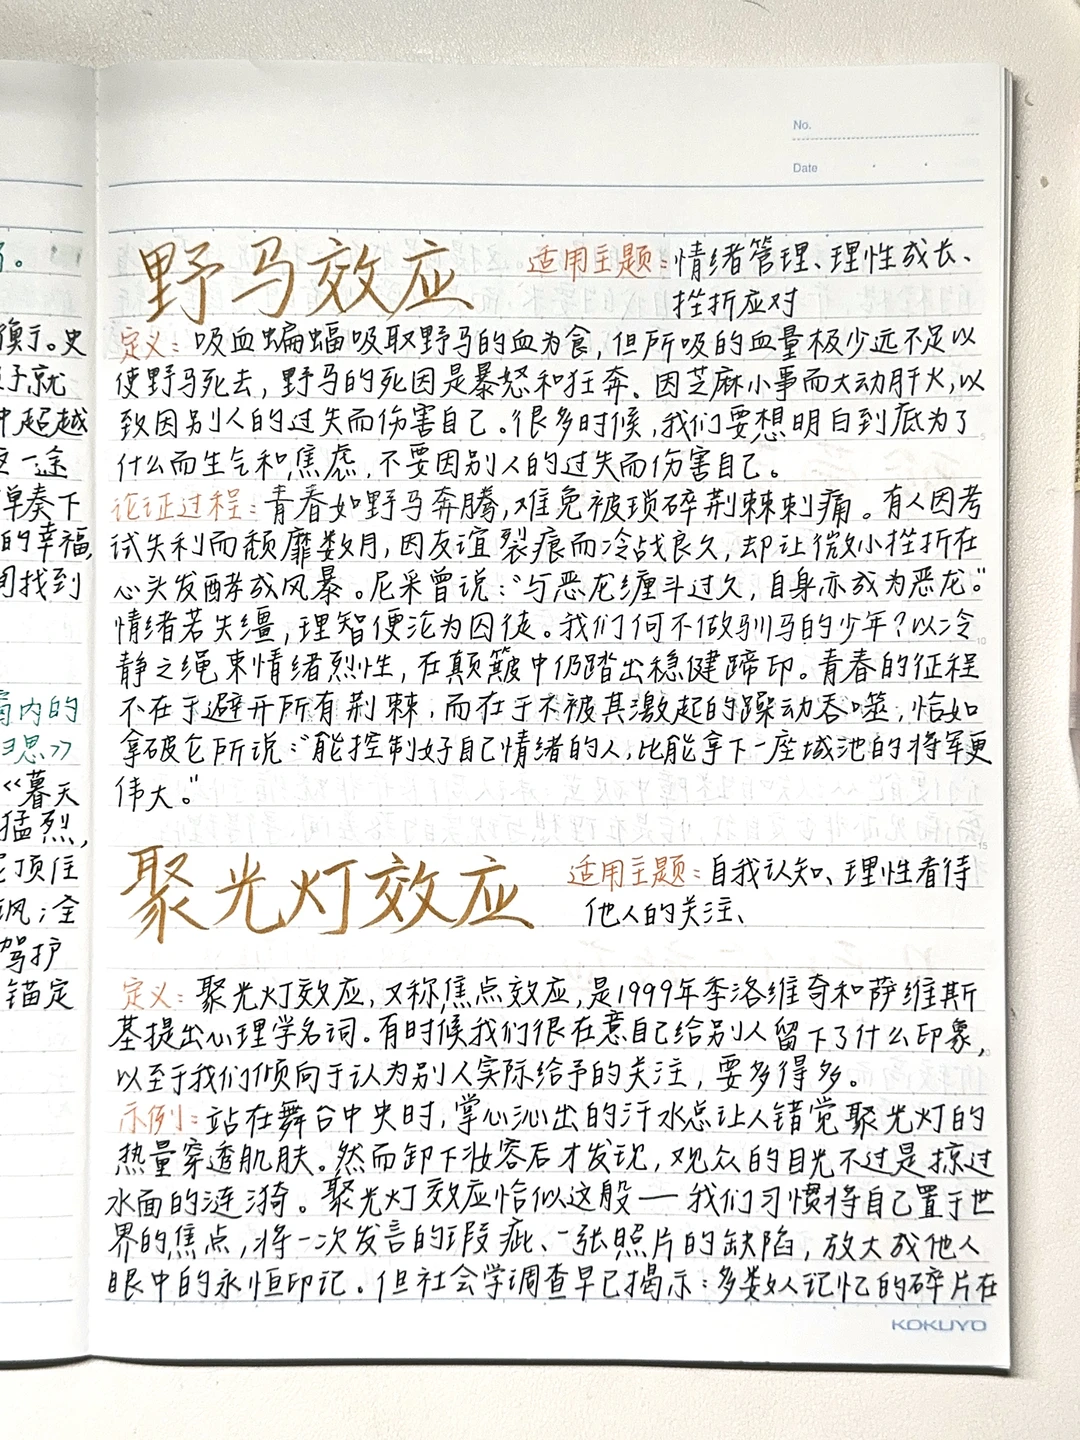 No.
Date
。
衡于。史
就
中超越
一途
弹奏下
的幸福,
找到
内的
思》
《暮天
猛烈,
顶住
风;全
驾护
锚定
野马效应 适用主题:情绪管理、理性成长、
挫折应对
定义:吸血蝙蝠吸取野马的血为食,但所吸的血量极少远不足以
使野马死去,野马的死因是暴怒和狂奔。因芝麻小事而大动肝火,以
致因别人的过失而伤害自己。很多时候,我们要想明白到底为了
什么而生气和焦虑,不要因别人的过失而伤害自己。
论证过程:青春如野马奔腾,难免被琐碎荆棘刺痛。有人因考
试失利而颓靡数月,因友谊裂痕而冷战良久,却让微小挫折在
心头发酵成风暴。尼采曾说:“与恶龙缠斗过久,自身亦成为恶龙。”
情绪若失缰,理智便沦为囚徒。我们何不做驯马的少年?以冷
静之绳束情绪烈性,在颠簸中仍踏出稳健蹄印。青春的征程
不在于避开所有荆棘,而在于不被其激起的躁动吞噬,恰如
拿破仑所说:“能控制好自己情绪的人,比能拿下一座城池的将军更
伟大。”
聚光灯效应 适用主题:自我认知、理性看待
他人的关注、
定义:聚光灯效应,又称焦点效应,是1999年季洛维奇和萨维斯
基提出心理学名词。有时候我们很在意自己给别人留下了什么印象,
以至于我们倾向于认为别人实际给予的关注,要多得多。
示例:站在舞台中央时,掌心沁出的汗水总让人错觉聚光灯的
热量穿透肌肤。然而卸下妆容后才发现,观众的目光不过是掠过
水面的涟漪。聚光灯效应恰似这般——我们习惯将自己置于世
界的焦点,将一次发言的瑕疵、一张照片的缺陷,放大成他人
眼中的永恒印记。但社会学调查早已揭示:多数人记忆的碎片在
KOKUYO